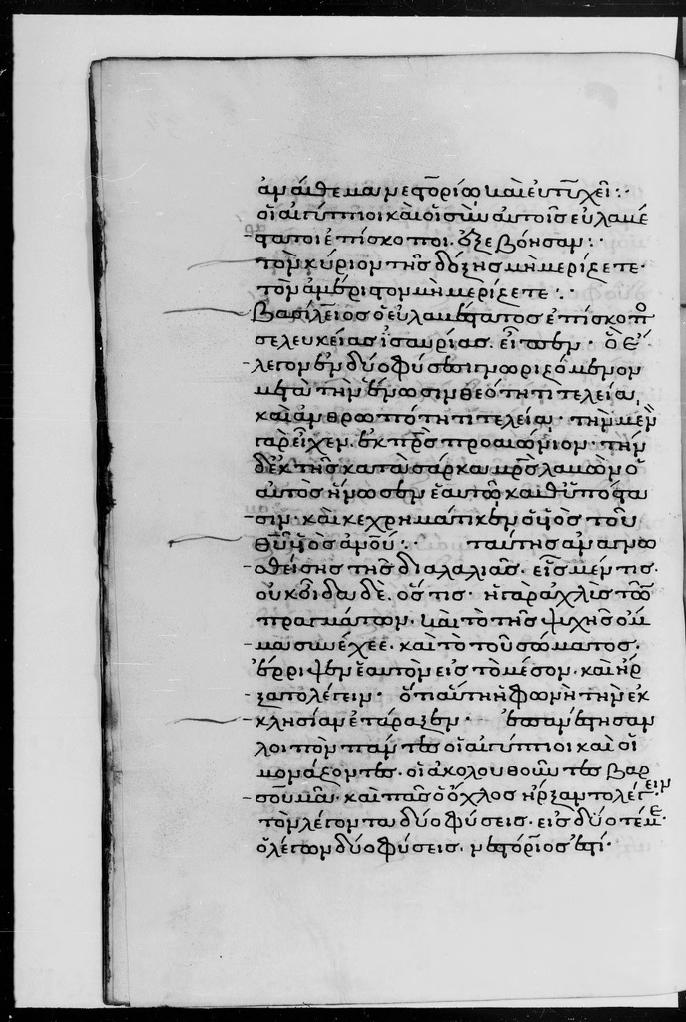 ἀνάθεμα νεστορίῳ καὶ εὐτυχεῖ :·
οἱ αἰγύπτιοι καὶ οἱ σὺν αὐτοῖς εὐλαβέ
στατοι ἐπίσκοποι. ὀξεβόησαν :·
τὸν κύριον τῆς δόξης μὴ μερίζετε·
τὸν ἀμέριστον μὴ μερίζετε :·
βασίλειος ὁ εὐλαβέστατος ἐπίσκοπ
σελευκείας ἰσαυρίας. εἶπεν · ὁ ἔ
λεγον ἐν δύο φύσεσι γνωριζόμενον
μετὰ τὴν ἕνωσιν θεότητι τελείᾳ,
καὶ ἀνθρωπότητι τελείᾳ · τὴν μὲν
γὰρ εἶχεν. ἐκ πρς προαιώνιον · τὴν
δὲ ἐκ τῆς κατὰ σάρκα μρς λαβὼν ὁ
αὐτὸς ἥνωσεν ἑαυτῷ καθ' ὑπόστα
σιν · καὶ κεχρημάτικεν ὁ υἱὸς τοῦ
θυ υἱὸς ανου :· ταύτης ἀναγνω
σθείσης τῆς διαλαλιᾶς. εἷς μέν τις.
οὐκ οἶδα δὲ. ὅς τις · ἡ ταραχὴ γὰρ τῶν
πραγμάτων. καὶ τὸ τῆς ψυχῆς ὄμ
μα συνέχεε. καὶ τὸ τοῦ σώματος.
ἔρριψεν ἑαυτὸν εἰς τὸ μέσον. καὶ ἤρ
ξατο λέγειν · ὅτι αὕτη ἡ φωνὴ τὴν ἐκ
κλησίαν ἐτάραξεν · ἐπανέστησαν
λοιπὸν πάντες οἱ αἰγύπτιοι καὶ οἱ
μονάζοντες. οἱ ἀκολουθοῦντες βαρ
σουμᾷ. καὶ πᾶς ὁ ὄχλος ἤρξαντο λέγειν
τὸν λέγοντα δύο φύσεις. εἰς δύο τέμε
ὁ λέγων δύο φύσεις. νεστόριος ἐστί·